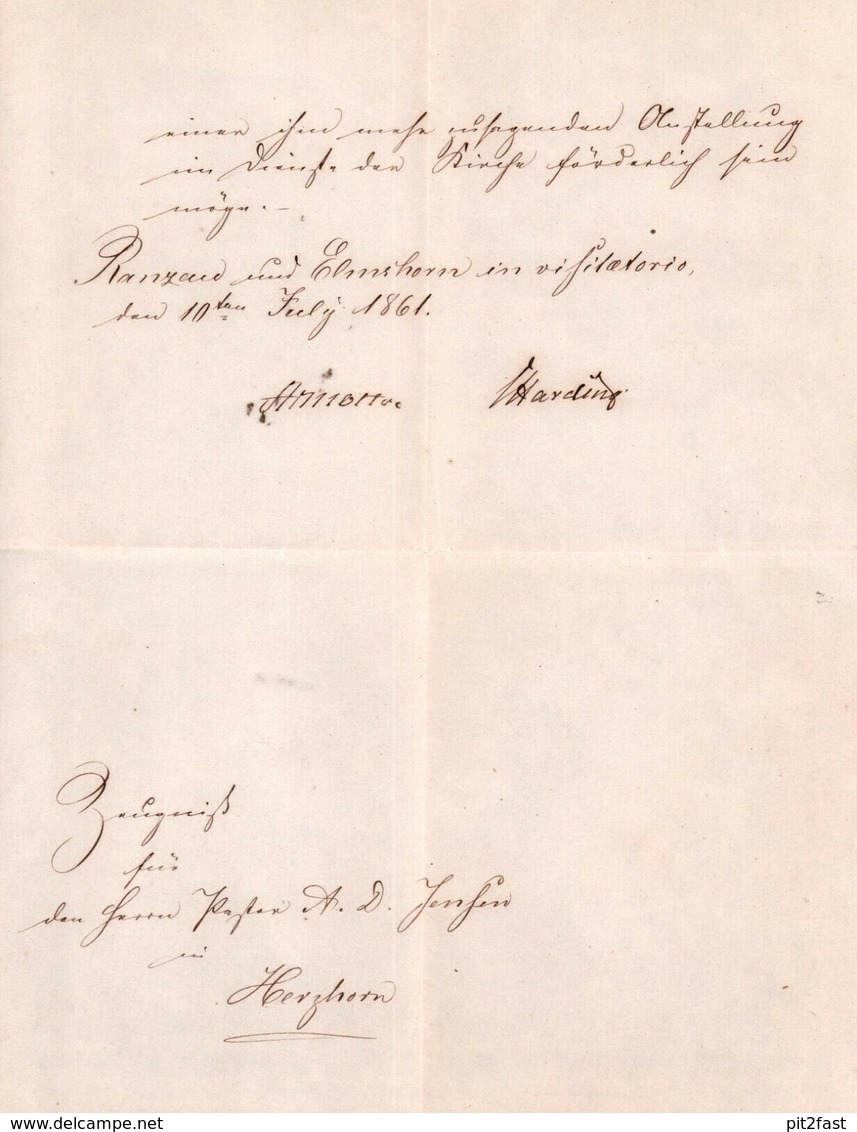 einer ihm mehr zusagenden Anstellung
im Dienste der Kirche förderlich sein
möge. —
Ranzau und Elmshorn in visitatorio,
den 10ten July 1861.
Harding
Zeugniß
für
den Herrn Pastor A. D. Jensen
in
Herzhorn
pit2fast